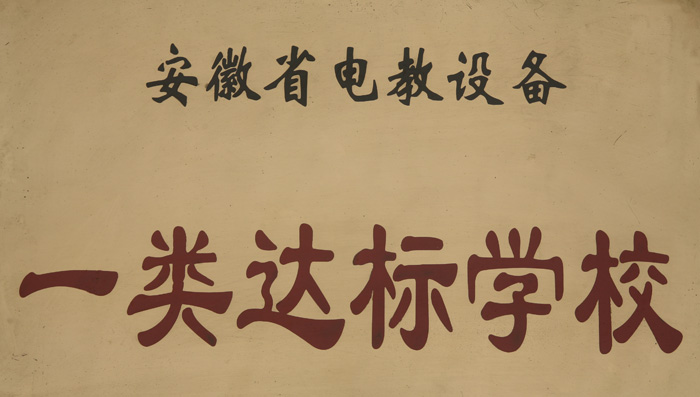 安徽省电教设备
一类达标学校